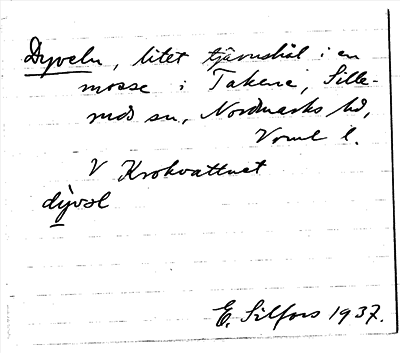 Dyveln, litet tjärnshål i en
mosse i Takene, Sille-
rud sn, Nordmarks hd,
Vrml l.
V Krokvattnet
dy̆vəl
E. Silfors 1937.